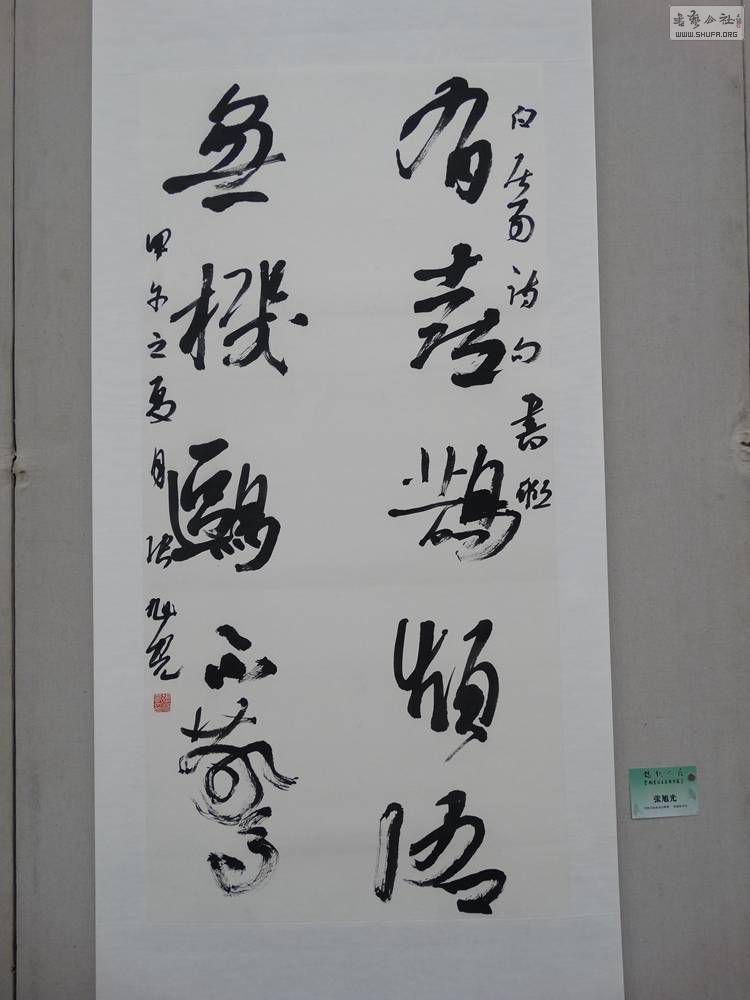 書藝公社
WWW.SHUFA.ORG
白居易詩句書
有喜鵲頻語
無機鷗不驚
甲午之夏月張旭光
张旭光